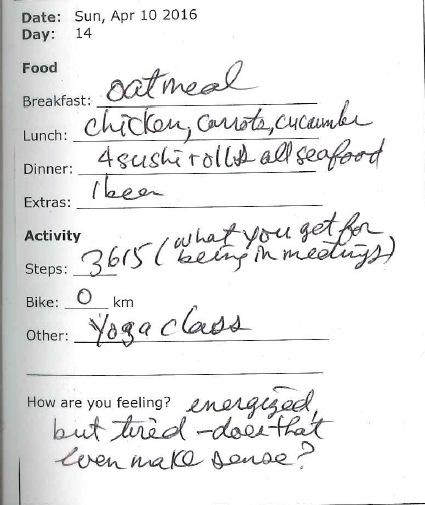 Date: Sun, Apr 10 2016
Day: 14
Food
Breakfast: oatmeal
Lunch: chicken, carrots, cucumber
Dinner: 4 sushi rolls all seafood
Extras: 1 beer
Activity
Steps: 3615 (what you get for
being in meetings)
Bike: 0 km
Other: Yoga class
How are you feeling? energized,
but tired - does that
even make sense?